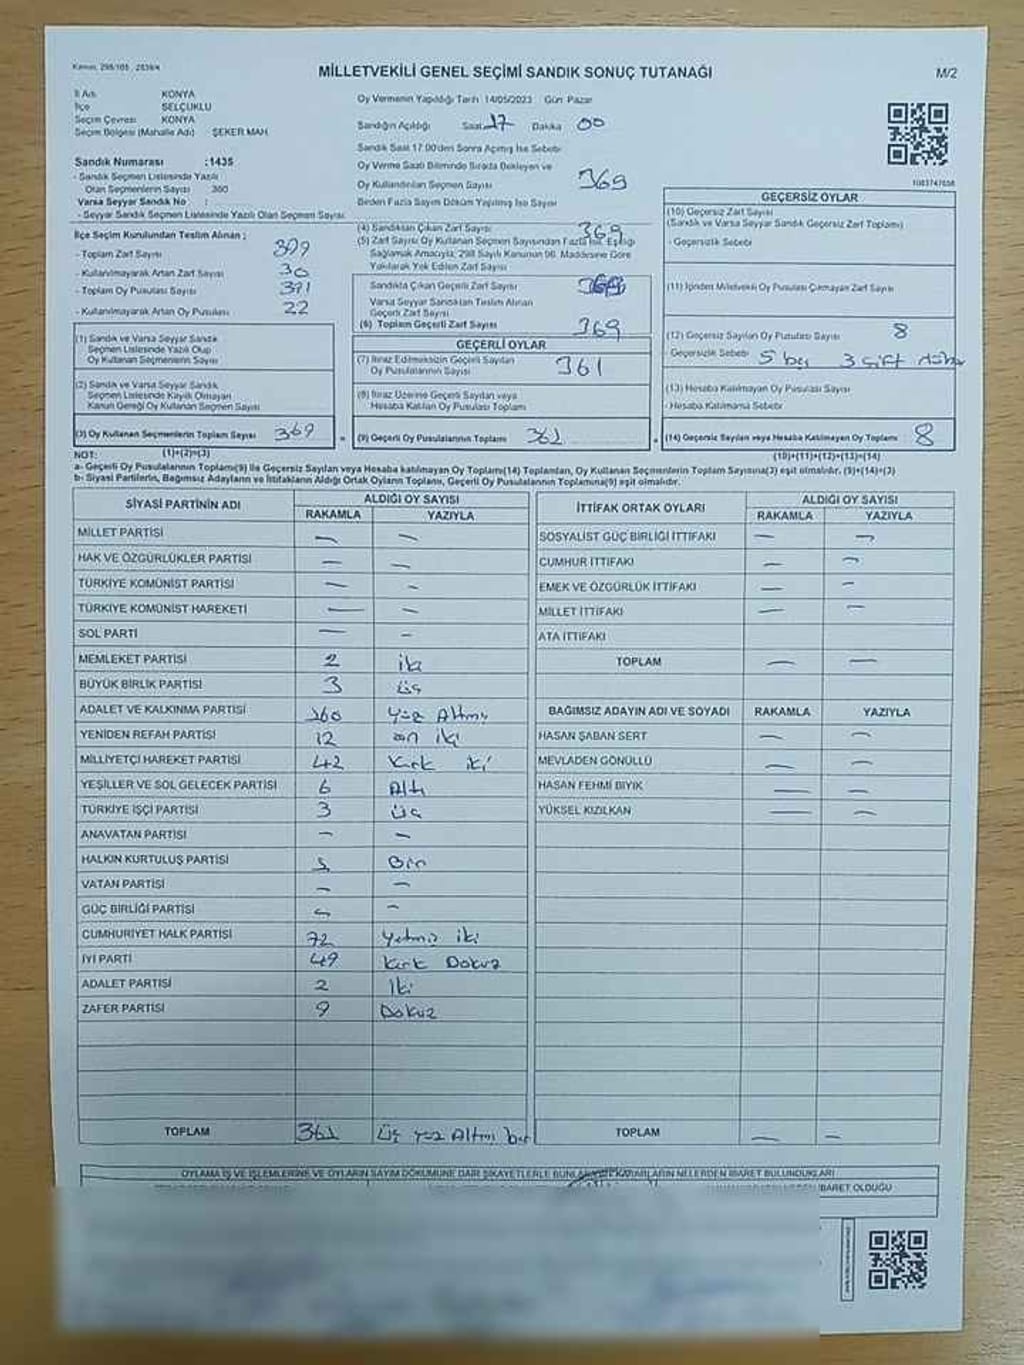 MİLLETVEKİLİ GENEL SEÇİMİ SANDIK SONUÇ TUTANAĞI
M/2
İl Adı KONYA
İlçe SELÇUKLU
Seçim Çevresi KONYA
Seçim Bölgesi (Mahalle Adı) ŞEKER MAH.
Sandık Numarası :1435
- Sandık Seçmen Listesinde Yazılı
Olan Seçmenlerin Sayısı 380
Varsa Seyyar Sandık No :
- Seyyar Sandık Seçmen Listesinde Yazılı Olan Seçmen Sayısı
Oy Vermenin Yapıldığı Tarih 14/05/2023 Gün Pazar
Sandığın Açıldığı Saat 17 Dakika 00
Sandık Saat 17.00'den Sonra Açılmış İse Sebebi
Oy Verme Saati Bitiminde Sırada Bekleyen ve
Oy Kullandırılan Seçmen Sayısı 369
Birden Fazla Sayım Döküm Yapılmış İse Sayısı
1083747658
İlçe Seçim Kurulundan Teslim Alınan ;
- Toplam Zarf Sayısı 399
- Kullanılmayarak Artan Zarf Sayısı 30
- Toplam Oy Pusulası Sayısı 391
- Kullanılmayarak Artan Oy Pusulası 22
(1) Sandık ve Varsa Seyyar Sandık
Seçmen Listesinde Yazılı Olup
Oy Kullanan Seçmenlerin Sayısı
(2) Sandık ve Varsa Seyyar Sandık
Seçmen Listesinde Kayıtlı Olmayan
Kanun Gereği Oy Kullanan Seçmen Sayısı
(3) Oy Kullanan Seçmenlerin Toplam Sayısı 369
(1)+(2)=(3)
(4) Sandıktan Çıkan Zarf Sayısı 369
(5) Zarf Sayısı Oy Kullanan Seçmen Sayısından Fazla İse, Eşitliği
Sağlamak Amacıyla, 298 Sayılı Kanunun 98. Maddesine Göre
Yakılarak Yok Edilen Zarf Sayısı
Sandıkta Çıkan Geçerli Zarf Sayısı
Varsa Seyyar Sandıktan Teslim Alınan
Geçerli Zarf Sayısı
(6) Toplam Geçerli Zarf Sayısı 369
GEÇERLİ OYLAR
(7) İtiraz Edilmeksizin Geçerli Sayılan
Oy Pusulalarının Sayısı 361
(8) İtiraz Üzerine Geçerli Sayılan veya
Hesaba Katılan Oy Pusulası Toplamı
(9) Geçerli Oy Pusulalarının Toplamı 361
GEÇERSİZ OYLAR
(10) Geçersiz Zarf Sayısı
(Sandık ve Varsa Seyyar Sandık Geçersiz Zarf Toplamı)
- Geçersizlik Sebebi
(11) İçinden Milletvekili Oy Pusulası Çıkmayan Zarf Sayısı
(12) Geçersiz Sayılan Oy Pusulası Sayısı 8
- Geçersizlik Sebebi 5 boş 3 Çift
(13) Hesaba Katılmayan Oy Pusulası Sayısı
- Hesaba Katılmama Sebebi
(14) Geçersiz Sayılan veya Hesaba Katılmayan Oy Toplamı 8
(10)+(11)+(12)+(13)=(14)
NOT:
a- Geçerli Oy Pusulalarının Toplamı(9) ile Geçersiz Sayılan veya Hesaba katılmayan Oy Toplamı(14) Toplamları, Oy Kullanan Seçmenlerin Toplam Sayısına(3) eşit olmalıdır. (9)+(14)=(3)
b- Siyasi Partilerin, Bağımsız Adayların ve İttifakların Aldığı Ortak Oyların Toplamı, Geçerli Oy Pusulalarının Toplamına(9) eşit olmalıdır.
SİYASİ PARTİNİN ADI ALDIĞI OY SAYISI
RAKAMLA YAZIYLA
MİLLET PARTİSİ — —
HAK VE ÖZGÜRLÜKLER PARTİSİ — —
TÜRKİYE KOMÜNİST PARTİSİ — —
TÜRKİYE KOMÜNİST HAREKETİ — —
SOL PARTİ — —
MEMLEKET PARTİSİ 2 iki
BÜYÜK BİRLİK PARTİSİ 3 üç
ADALET VE KALKINMA PARTİSİ 160 Yüz Altmış
YENİDEN REFAH PARTİSİ 12 on iki
MİLLİYETÇİ HAREKET PARTİSİ 42 Kırk iki
YEŞİLLER VE SOL GELECEK PARTİSİ 6 Altı
TÜRKİYE İŞÇİ PARTİSİ 3 üç
ANAVATAN PARTİSİ — —
HALKIN KURTULUŞ PARTİSİ 1 Bir
VATAN PARTİSİ — —
GÜÇ BİRLİĞİ PARTİSİ — —
CUMHURİYET HALK PARTİSİ 72 Yetmiş iki
İYİ PARTİ 49 Kırk Dokuz
ADALET PARTİSİ 2 İki
ZAFER PARTİSİ 9 Dokuz
TOPLAM 361 üç yüz Altmış bir
İTTİFAK ORTAK OYLARI ALDIĞI OY SAYISI
RAKAMLA YAZIYLA
SOSYALİST GÜÇ BİRLİĞİ İTTİFAKI — —
CUMHUR İTTİFAKI — —
EMEK VE ÖZGÜRLÜK İTTİFAKI — —
MİLLET İTTİFAKI — —
ATA İTTİFAKI
TOPLAM — —
BAĞIMSIZ ADAYIN ADI VE SOYADI RAKAMLA YAZIYLA
HASAN ŞABAN SERT — —
MEVLADEN GÖNÜLLÜ — —
HASAN FEHMİ BIYIK — —
YÜKSEL KIZILKAN — —
TOPLAM — —
OYLAMA İŞ VE İŞLEMLERİNE VE OYLARIN SAYIM DÖKÜMÜNE DAİR ŞİKAYETLERLE
NELERDEN İBARET BULUNDUKLARI
İBARET OLDUĞU